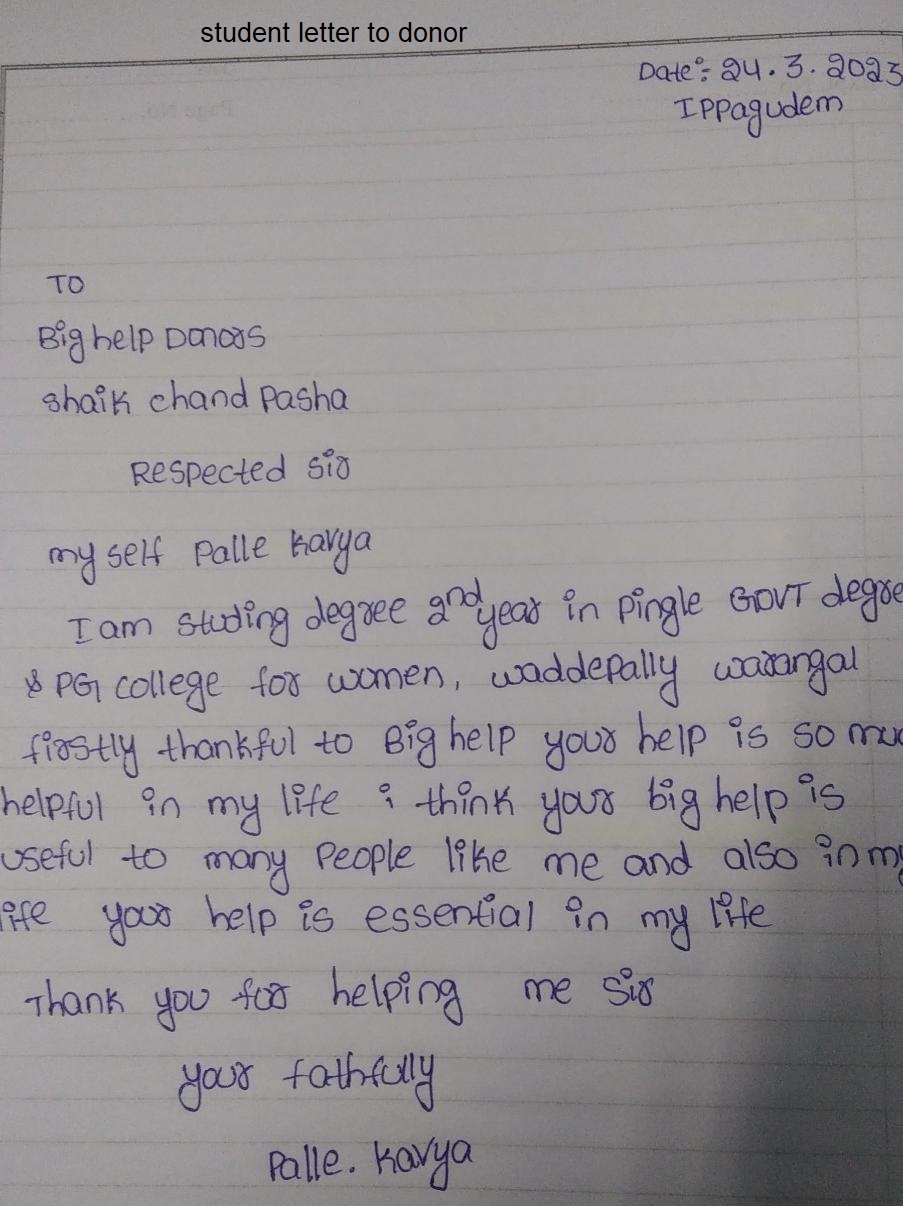 student letter to donor
Date:- 24.3.2023
Ippagudem
TO
Big help Donors
shaik chand Pasha
Respected sir
my self Palle Kavya
I am studing degree 2nd year in pingle GOVT degre
& PG college for women, waddepally warangal
firstly thankful to Big help your help is so muc
helpful in my life i think your big help is
useful to many People like me and also in my
life your help is essential in my life
Thank you for helping me sir
your fathfully
Palle. Kavya